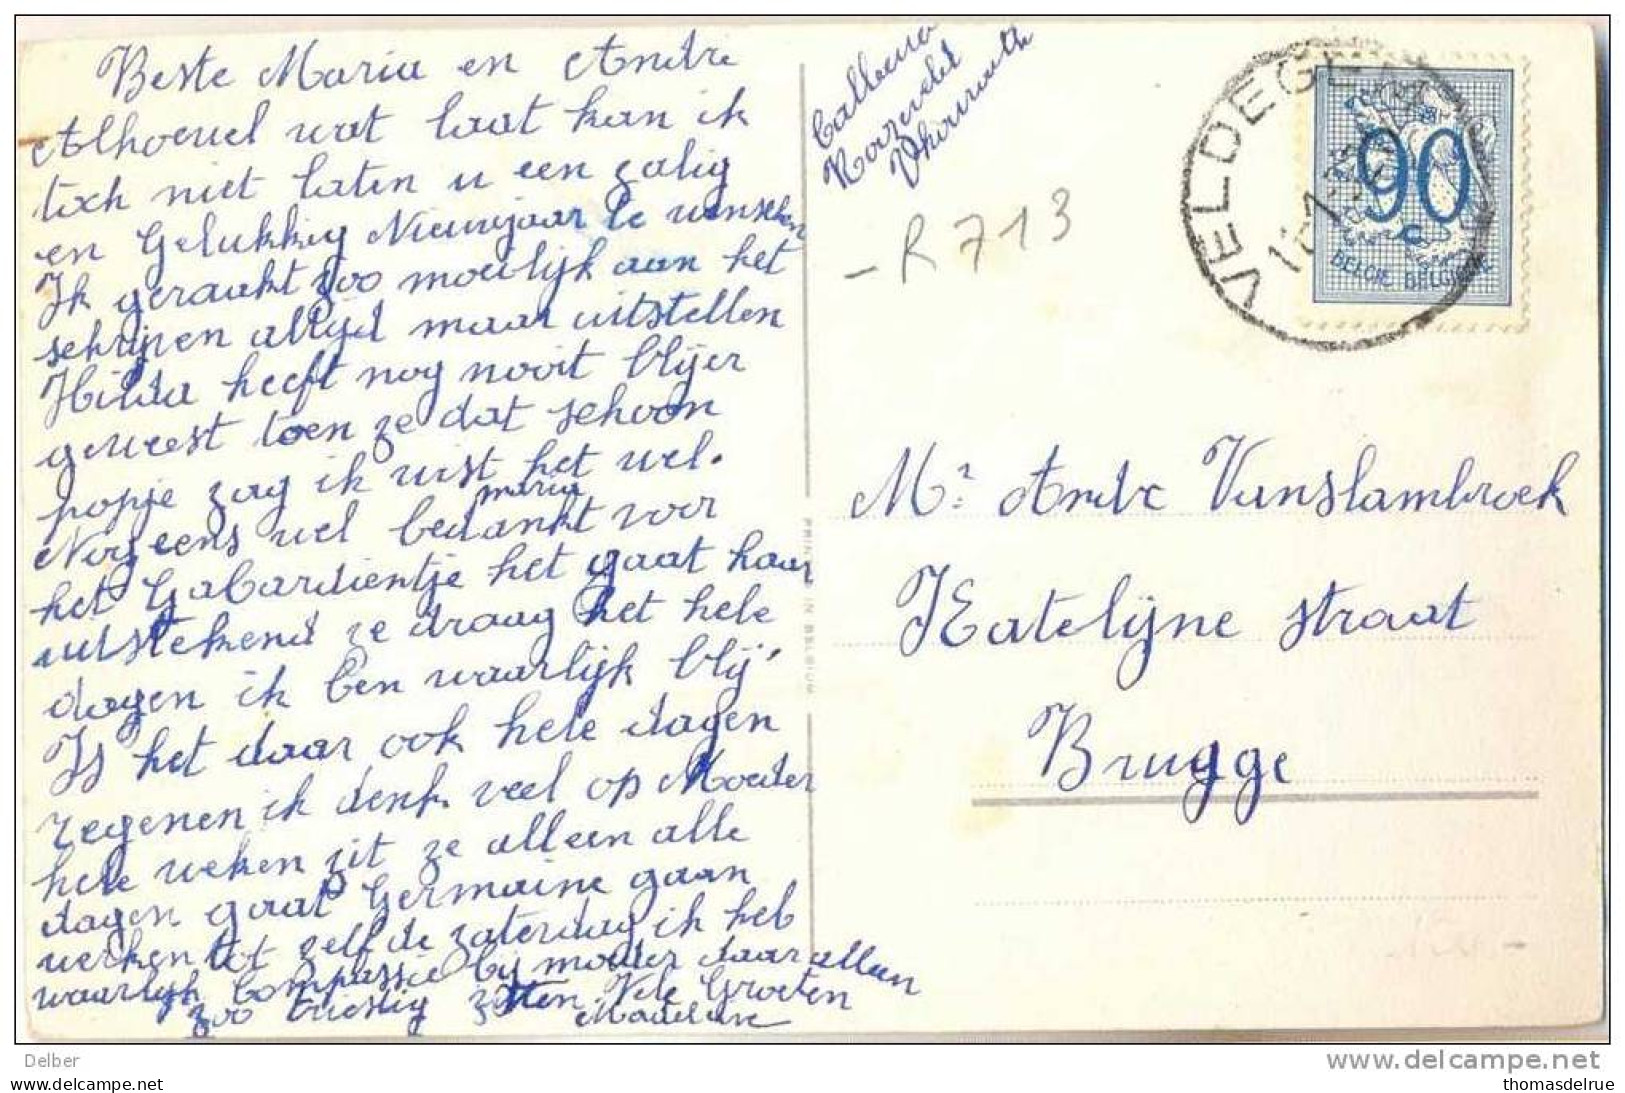 Beste Maria en Andre
Alhoewel wat laat kan ik
toch niet laten u een zalig
en Gelukkig Nieuwjaar te wenschen
Ik geraakt zoo moeilijk aan het
schrijven altijd maar uitstellen
Hilda heeft nog nooit blijer
geweest toen ze dat schoon
popje zag ik wist het wel.
maria
Nog eens wel bedankt voor
het Gabardientje het gaat haar
uitstekend ze draag het hele
dagen ik ben waarlijk blij.
Is het daar ook hele dagen
regenen ik denk veel op Moeder
hele weken zit ze alleen alle
dagen gaat Germaine gaan
werken tot zelf de zaterdag ik heb
waarlijk Compassie bij moeder daar alleen
zoo triestig zitten. Vele Groeten
Madeleine
Roozendel
- R 713
VELDEGEM
90
BELGIE BELGIQUE
PRINTED IN BELGIUM
Mr. Andre Vanslambroek
Katelijne straat
Brugge
Delber
www.delcampe.net
thomasdelrue